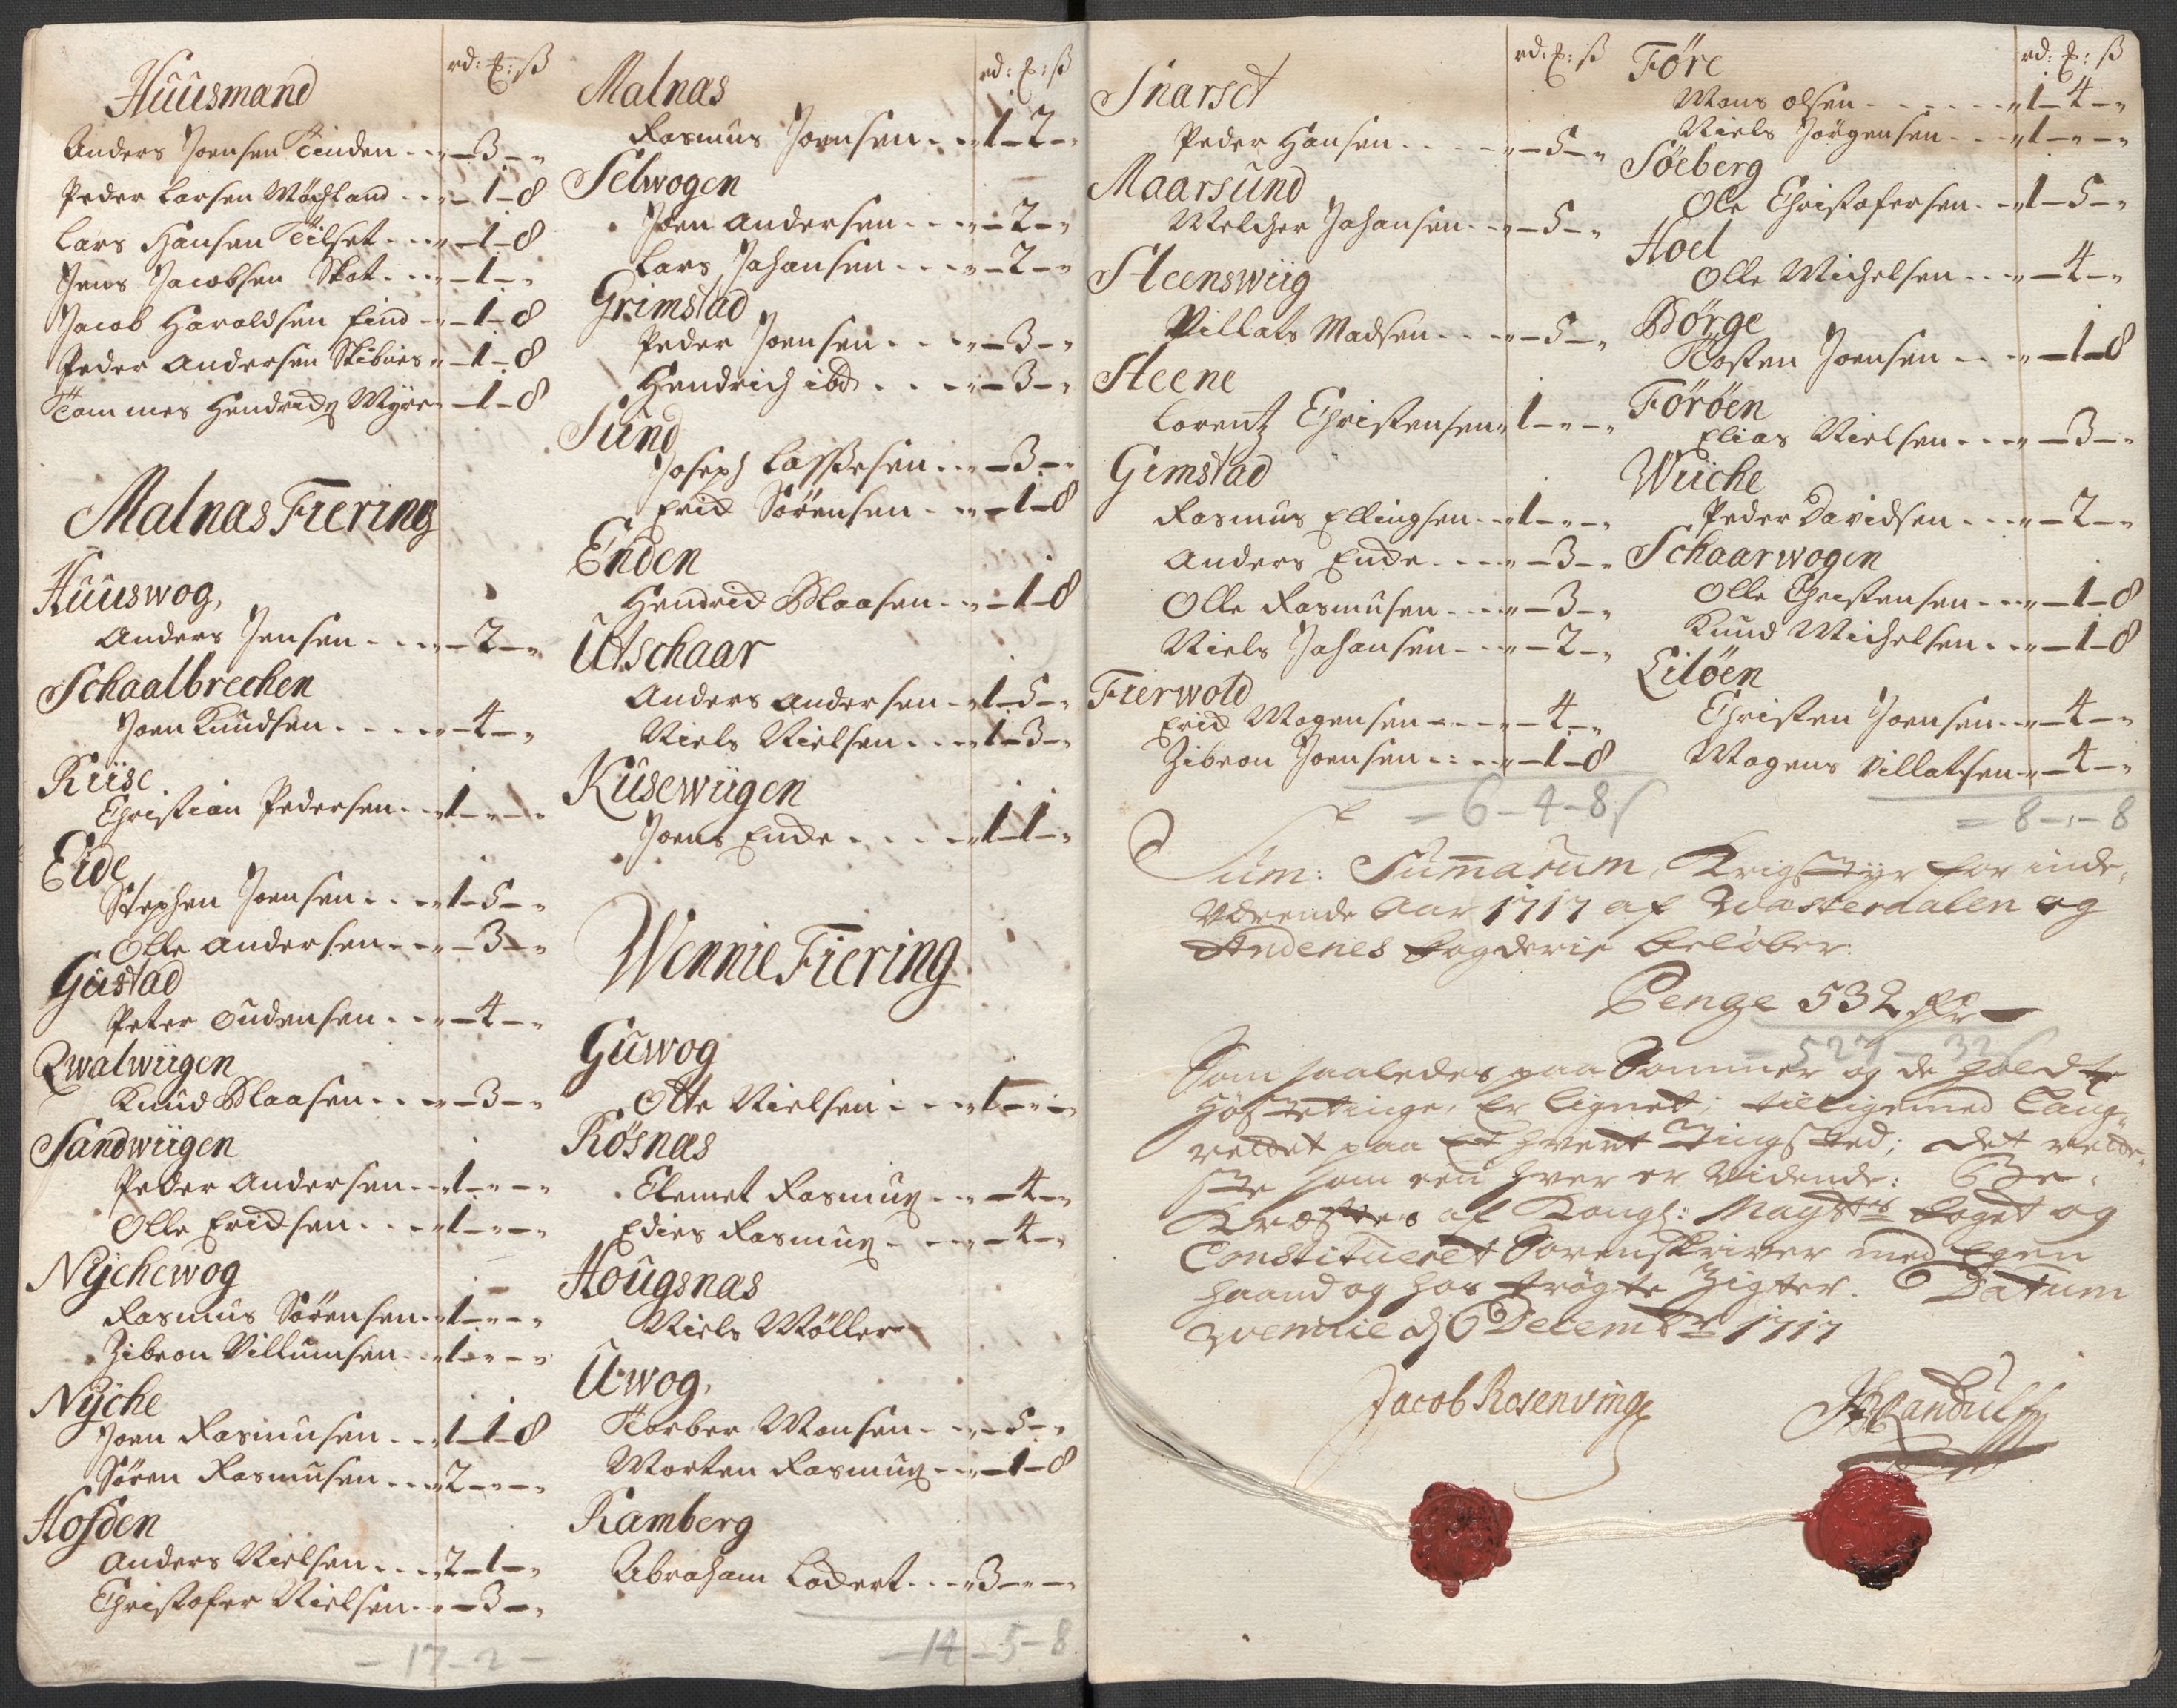 rd: ꝑ: ß
Huusmand
Anders Joensen Tinden - - „ – 3 – „
Peder Larsen Mochland - - „ – 1 – 8
Lars Hansen Tilset - - „ – 1 – 8
Jens Jacobsen Skot - - „ – 1 – „
Jacob Haraldsen Eind - „ – 1 – 8
Peder Andersen Skibnes „ – 1 – 8
Tommes Hendrichs Myre „ – 1 – 8
Malnas Fiering
Huuswog,
Anders Jensen - - - „ – 2 – „
Schaalbrechen
Joen Knudsen - - - - „ – 4 – „
Riise
Christian Pedersen - - „ 1 – „ – „
Eide
Stephen Joensen - - - „ 1 – 5 – „
Olle Andersen - - - „ – 3 – „
Gustad
Peter Oudensen - - „ – 4 – „
Qwalwiigen
Knud Klaasen - - - „ – 3 – „
Sandwiigen
Peder Andersen - - „ 1 – „ – „
Olle Erichsen - - - „ 1 – „ – „
Nÿchewog
Rasmus Sörensen - „ 1 – „ – „
Zibron Villumsen - - „ 1 – „ – „
Nÿche
Joen Rasmusen - - „ 1 – 1 – 8
Sören Rasmusen - - - „ 2 – „ – „
Hofden
Anders Nielsen - - - „ 2 – 1 – „
Christofer Nielsen - „ – 3 – „
– 17 – 2 –
rd: ꝑ: ß
Malnas
Rasmus Joensen - - „ 1 – 2 – „
Selwogen
Joen Andersen - - - „ – 2 – „
Lars Johansen - - - „ – 2 – „
Grimstad
Peder Joensen - - - „ – 3 – „
Hendrich ibd - - - „ – 3 – „
Sund
Joseph Lassesen - - „ – 3 – „
Erich Sörensen - - „ – 1 – 8
Enden
Hendrich Klaasen - „ – 1 – 8
Utschaar
Anders Andersen - „ 1 – 5 – „
Niels Nielsen - - - „ 1 – 3 – „
Kusewiigen
Joens Ende - - - - „ 1 – 1 – „
Wennie Fiering
Guwog
Otte Nielsen - - - „ 1 – „ – „
Rösnas
Elemet Rasmus - - „ – 4 – „
Edies Rasmus - - - „ – 4 – „
Hougsnas
Niels Möller
Uwog,
Torber Monsen - - „ – 5 – „
Morten Rasmus - - „ – 1 – 8
Ramberg
Abraham Lockert - - - „ 3 – „ – „
– 14 – 5 – 8
rd: ꝑ: ß
Snarset
Peder Hansen - - - - „ – 5 – „
Maarsund
Melcher Johansen - - „ – 5 – „
Steenswiig
Villats Madsen - - - „ – 5 – „
Steene
Lorentz Christensen „ 1 – „ – „
Gimstad
Rasmus Ellingsen - - „ 1 – „ – „
Anders Ende - - - - „ – 3 – „
Olle Rasmusen - - - „ – 3 – „
Niels Johansen - - - „ – 2 – „
Fierwold
Erich Mogensen - - - „ – 4 – „
Zibron Joensen - - - „ – 1 – 8
– 6 – 4 – 8
rd: ꝑ: ß
Före
Mons Olsen - - - - - - „ 1 – 4 – „
Niels Jörgensen - - - „ 1 – „ – „
Söeberg
Ole Christofersen - - „ 1 – 5 – „
Hoel
Olle Michelsen - - - „ – 4 – „
Börge
Tosten Joensen - - - „ – 1 – 8
Föröen
Elias Nielsen - - - „ – 3 – „
Wiiche
Peder Davidsen - - - „ – 2 – „
Schaarwogen
Olle Christensen - - - „ – 1 – 8
Knud Michelsen - - - „ – 1 – 8
Lilöen
Christen Joensen - - „ – 4 – „
Mogens Villatsen - - „ – 4 – „
= 8 – „ – 8
Sum: Sum̄arum, Krigstÿr for inde,
værende Aar 1717 af Wæsterdalen og
Andenes Fogderie beløber:
Penge 532 Rdr –
Som saaledes paa Sommer og de holdte
Høsttinge, Er lignet; tilligemed Laug¬
rettet paa Et hvert Tingsted; det rette¬
ste som een hver er Vidende: Be¬
Kræftes af Kongl: Maÿtts Foget og
Constitueret Sorenskriver med Egen
haand og hos trøgte Zigter. Datum
Wennie d 6 Decembr 1717
Jacob Rosenvinge
Randulff